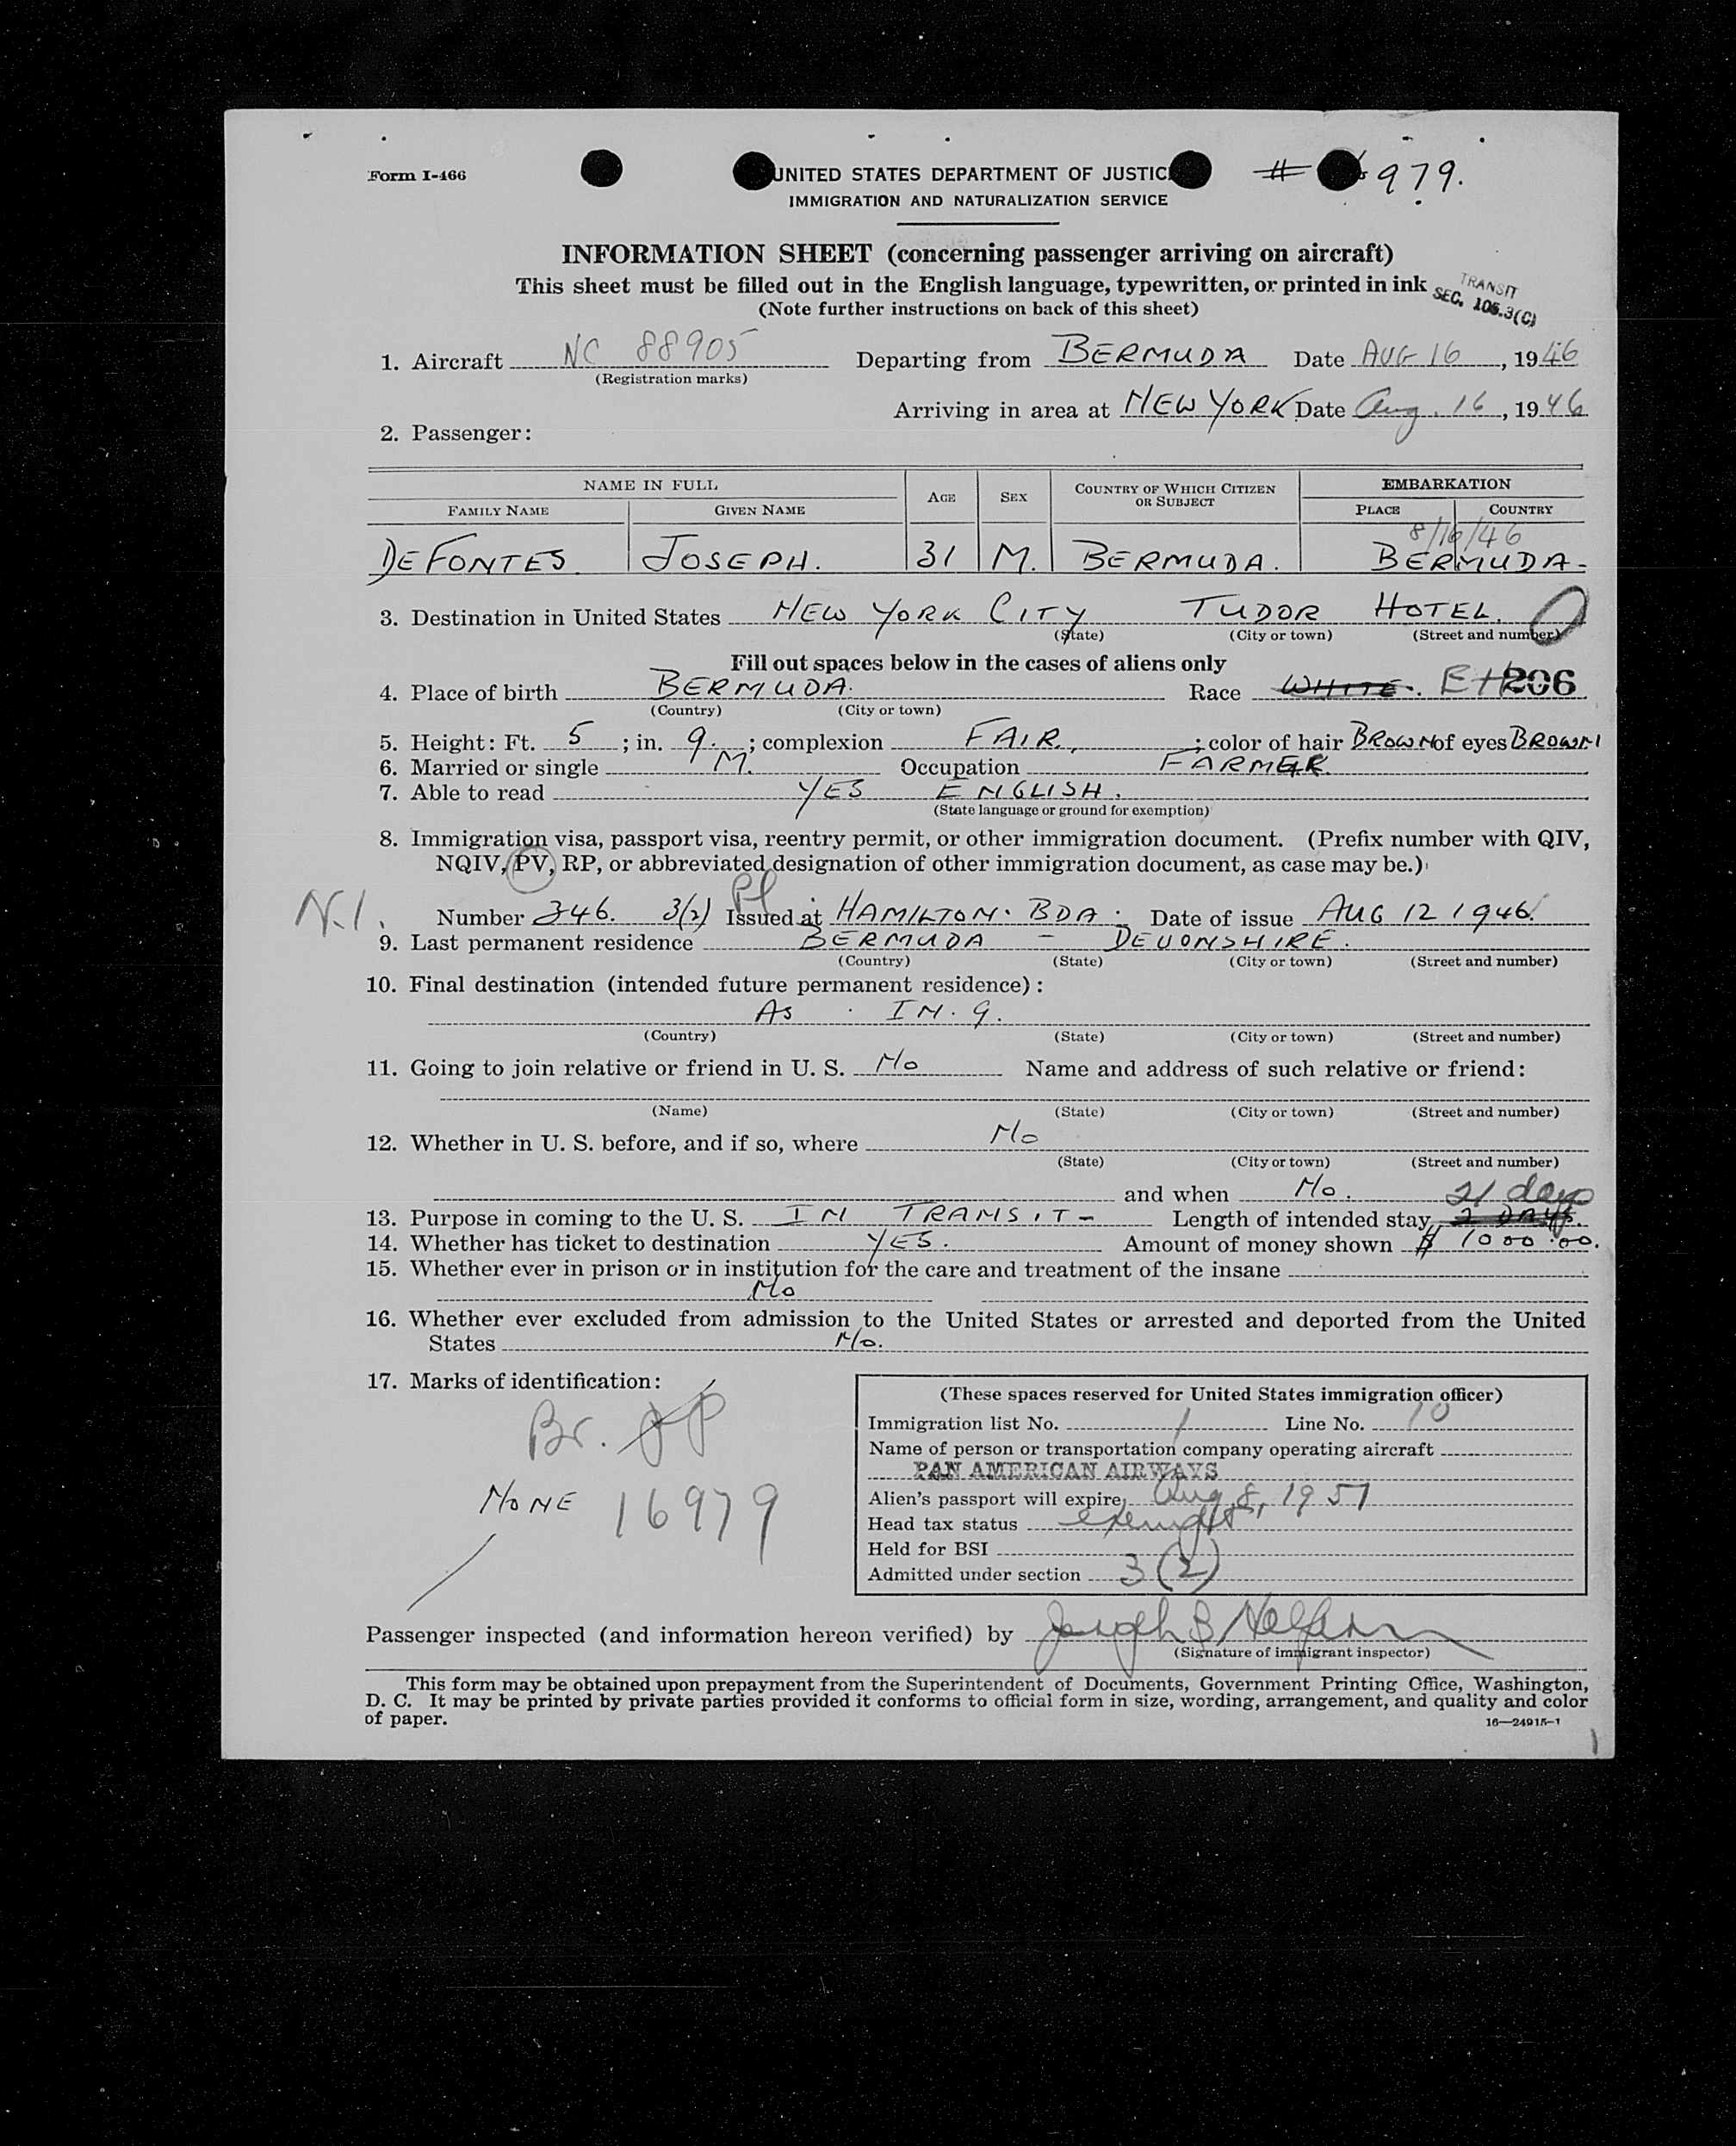 Form I-466
UNITED STATES DEPARTMENT OF JUSTIC
# 979.
IMMIGRATION AND NATURALIZATION SERVICE
INFORMATION SHEET (concerning passenger arriving on aircraft)
This sheet must be filled out in the English language, typewritten, or printed in ink
TRANSIT
SEC. 105.3(C)
(Note further instructions on back of this sheet)
1. Aircraft NC 88905 Departing from BERMUDA Date AUG 16, 1946
(Registration marks)
Arriving in area at NEW YORK Date Aug. 16, 1946
2. Passenger:
NAME IN FULL AGE SEX COUNTRY OF WHICH CITIZEN OR SUBJECT EMBARKATION
FAMILY NAME GIVEN NAME PLACE COUNTRY
8/16/46
DE FONTES. JOSEPH. 31 M. BERMUDA. BERMUDA-
3. Destination in United States NEW YORK CITY TUDOR HOTEL.
(State) (City or town) (Street and number)
Fill out spaces below in the cases of aliens only
4. Place of birth BERMUDA. Race WHITE. 206
(Country) (City or town)
5. Height: Ft. 5; in. 9.; complexion FAIR,; color of hair BROWN of eyes BROWN
6. Married or single M. Occupation FARMER.
7. Able to read YES ENGLISH.
(State language or ground for exemption)
8. Immigration visa, passport visa, reentry permit, or other immigration document. (Prefix number with QIV,
NQIV, PV, RP, or abbreviated designation of other immigration document, as case may be.)
N.I. Number 346. 3(2) Issued at HAMILTON. BDA. Date of issue AUG 12 1946.
9. Last permanent residence BERMUDA - DEVONSHIRE.
(Country) (State) (City or town) (Street and number)
10. Final destination (intended future permanent residence):
As. IN. 9.
(Country) (State) (City or town) (Street and number)
11. Going to join relative or friend in U. S. No Name and address of such relative or friend:
(Name) (State) (City or town) (Street and number)
12. Whether in U. S. before, and if so, where No
(State) (City or town) (Street and number)
and when No. 21 days
13. Purpose in coming to the U. S. IN TRANSIT- Length of intended stay 2 DAYS.
14. Whether has ticket to destination YES. Amount of money shown $ 1000.00.
15. Whether ever in prison or in institution for the care and treatment of the insane
No
16. Whether ever excluded from admission to the United States or arrested and deported from the United
States No.
17. Marks of identification:
Br.
NONE 16979
(These spaces reserved for United States immigration officer)
Immigration list No. 1 Line No. 10
Name of person or transportation company operating aircraft
PAN AMERICAN AIRWAYS
Alien's passport will expire Aug. 8, 1951
Head tax status exempt
Held for BSI
Admitted under section 3(2)
Passenger inspected (and information hereon verified) by Joseph B
(Signature of immigrant inspector)
This form may be obtained upon prepayment from the Superintendent of Documents, Government Printing Office, Washington,
D. C. It may be printed by private parties provided it conforms to official form in size, wording, arrangement, and quality and color
of paper.
16—24915-1